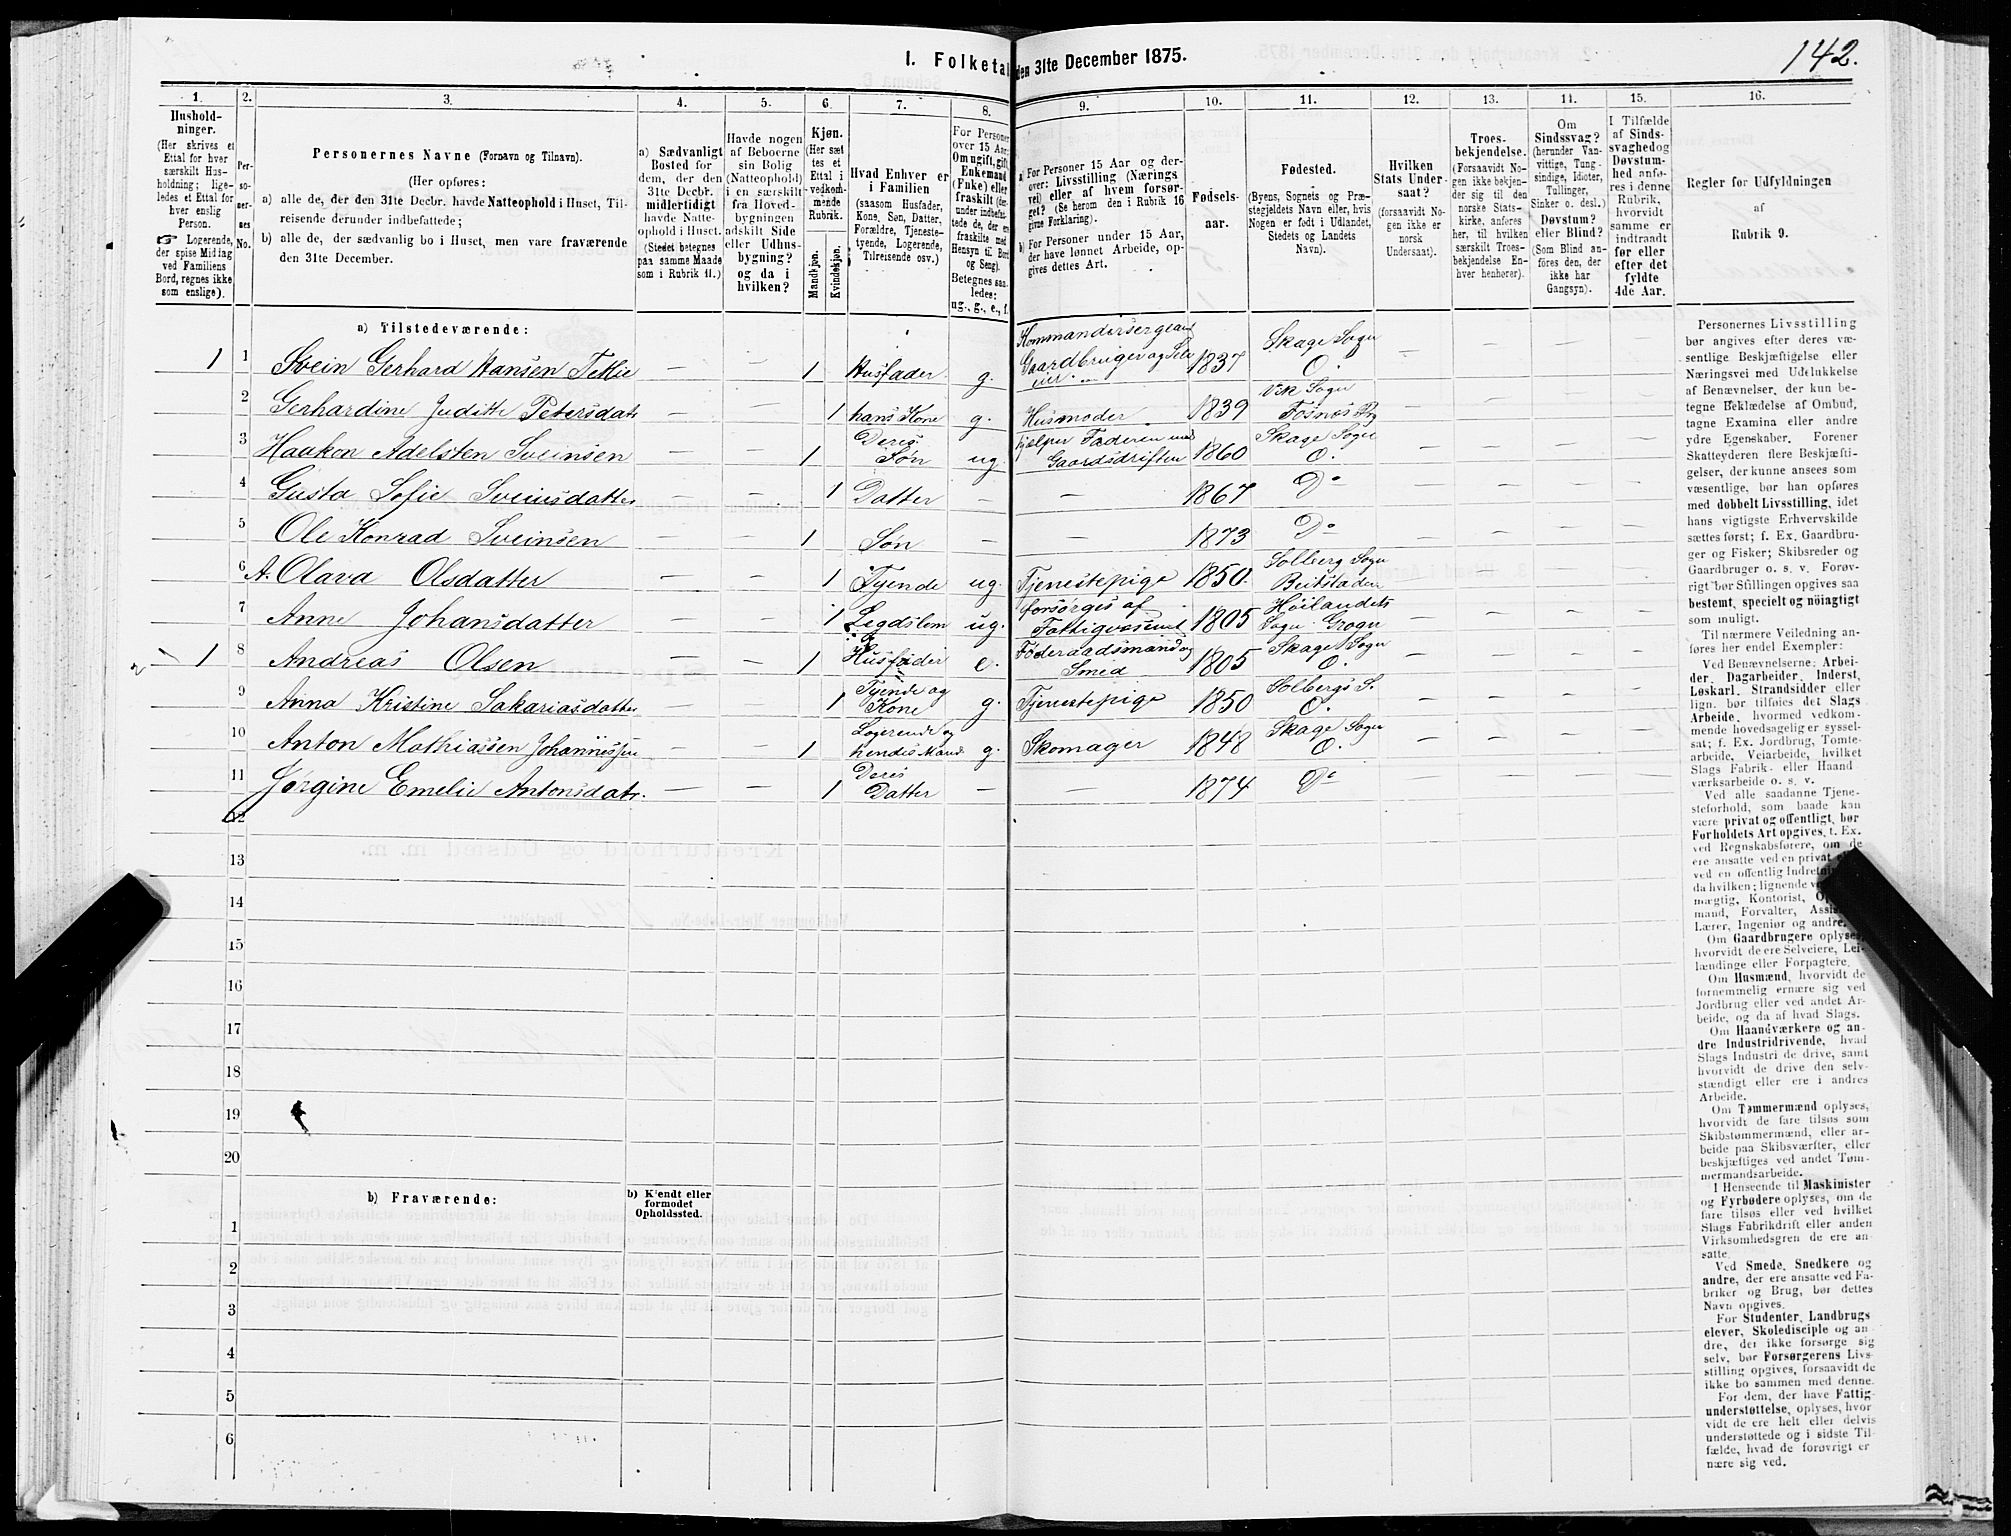 142.
I. Folketal
den 31te December 1875.
1.
2.
3.
4.
5.
6.
7.
8.
9.
10.
11.
12.
13.
14.
15.
16.
Hushold-
ninger.
(Her skrives et
Ettal for hver
særskilt Hus-
holdning; lige-
ledes et Ettal for
hver enslig
Person.
☞ Logerende,
der spise Middag
ved Familiens
Bord, regnes ikke
som enslige).
Per-
so-
ner-
nes
No.
Personernes Navne (Fornavn og Tilnavn).
(Her opføres:
a) alle de, der den 31te Decbr. havde Natteophold i Huset, Til-
reisende derunder indbefattede;
b) alle de, der sædvanlig bo i Huset, men vare fraværende
den 31te December.
a) Sædvanligt
Bosted for
dem, der den
31te Decbr.
midlertidigt
havde Natte-
ophold i Huset.
(Stedet betegnes
paa samme Maade
som i Rubrik 11.)
Havde nogen
af Beboerne
sin Bolig
(Natteophold)
i en særskilt
fra Hoved-
bygningen
adskilt Side
eller Udhus-
bygning?
og da i
hvilken?
Kjøn.
(Her sæt
tes et
Ettal i
vedkom-
mende
Rubrik.
Mandkjøn.
Kvindekjøn.
Hvad Enhver er
i Familien
(saasom Husfader,
Kone, Søn, Datter,
Forældre, Tjeneste-
tyende, Logerende,
Tilreisende osv.)
For Personer
over 15 Aar:
Om ugift, gift,
Enkemand
(Enke) eller
fraskilt (der-
under indbefat-
tede de, der ere
fraskilte med
Hensyn til Bord
og Seng).
Betegnes saa-
ledes:
ug., g., e., f.
a) For Personer 15 Aar og der-
over: Livsstilling (Nærings
vei) eller af hvem forsør-
get? (Se herom den i Rubrik 16
givne Forklaring).
b) For Personer under 15 Aar,
der have lønnet Arbeide, op-
gives dettes Art.
Fødsels-
aar.
Fødested.
(Byens, Sognets og Præ-
stegjeldets Navn eller, hvis
Nogen er født i Udlandet,
Stedets og Landets
Navn).
Hvilken
Stats Under-
saat?
(forsaavidt No-
gen ikke er
norsk
Undersaat).
Troes-
bekjendelse.
(Forsaavidt No-
gen ikke bekjen-
der sig til den
norske Stats-
kirke, anføres
her, til hvilken
særskilt Troes-
bekjendelse En-
hver henhører).
Om
Sindssvag?
(herunder Van-
vittige, Tung-
sindige, Idioter,
Tullinger,
Sinker o. desl.)
Døvstum?
eller Blind?
(Som Blind an-
føres den, der
ikke har
Gangsyn).
I Tilfælde
af Sinds-
svaghed og
Døvstum-
hed anfø-
res i denne
Rubrik,
hvorvidt
samme er
indtraadt
før eller
efter det
fyldte
4de Aar.
Regler for Udfyldningen
af
Rubrik 9.
a) Tilstedeværende:
1 1 Svein Gerhard Hansen Tetlie — — 1 Husfader g. Kommandersergeant Gaardbruger og Selveier 1837 Skage Sogn O. — — — —
2 Gerhardine Juditte Petersdatr — — 1 hans Kone g. Husmoder 1839 Vik Sogn Fosnes Pg — — — —
3 Haakon Adelsten Sveinsen — — 1 Deres Søn ug. hjelper Faderen med Gaardsdriften 1860 Skage Sogn O. — — — —
4 Gusta Sofie Sveinsdatter — — 1 Datter — — 1867 Do — — — —
5 Ole Konrad Sveinsen — — 1 Søn — — 1873 Do — — — —
6 A. Olava Olsdatter — — 1 Tjende ug. Tjenestepige 1850. Solberg Sogn Beitstaden — — — —
7 Anne Johansdatter — — 1 Legdslem ug. forsørges af Fattigvæsenet 1805 Høilandets Sogn Grogn — — — —
2 1 8 Andreas Olsen — — 1 Husfader e. Føderaadsmand og Smed 1805 Skage Sogn O. — — — —
9 Anna Kristine Sakariasdatter — — 1 Tjende og Kone g. Tjenestepige 1850 Solbergs S. O. — — — —
10 Anton Mathiassen Johannessen — — 1 Logerende og hendes Mand g. Skomager 1848 Skage Sogn O. — — — —
11 Jørgine Emelie Antonsdatr. — — 1 Deres Datter — — 1874 Do — — — —
12
13
14
15
16
17
18
19
20
b) Fraværende:
b) Kjendt eller
formodet
Opholdssted.
1
2
3
4
5
6
Personernes Livsstilling
bør angives efter deres væ-
sentlige Beskjæftigelse eller
Næringsvei med Udelukkelse
af Benævnelser, der kun be-
tegne Beklædelse af Ombud,
tagne Examina eller andre
ydre Egenskaber. Forener
Skatteyderen flere Beskjæfti-
gelser, der kunne ansees som
væsentlige, bør han opføres
med dobbelt Livsstilling, idet
hans vigtigste Erhvervskilde
sættes først; f. Ex. Gaardbru-
ger og Fisker; Skibsreder og
Gaardbruger o. s. v. Forøv-
rigt bør Stillingen opgives saa
bestemt, specielt og nøiagtigt
som muligt.
Til nærmere Veiledning an-
føres her endel Exempler:
Ved Benævnelserne: Arbei-
der, Dagarbeider, Inderst,
Løskarl, Strandsidder eller
lign. bør tilføies det Slags
Arbeide, hvormed vedkom-
mende hovedsagelig er syssel-
sat; f. Ex. Jordbrug, Tomte-
arbeide, Veiarbeide, hvilket
Slags Fabrik- eller Haand
værksarbeide o. s. v.
Ved alle saadanne Tjene-
steforhold, som baade kan
være privat og offentligt, bør
Forholdets Art opgives, t. Ex.
ved Regnskabsførere, om de
ere ansatte ved en privat
ved en offentlig Indretni
da hvilken; lignende ve
mægtig, Kontorist, O
mand, Forvalter, Assis
Lærer, Ingeniør og andre.
Om Gaardbrugere oplyses,
hvorvidt de ere Selveiere, Lei-
lændinge eller Forpagtere.
Om Husmænd, hvorvidt de
fornemmelig ernære sig ved
Jordbrug eller ved andet Ar-
beide, og da af hvad Slags.
Om Haandværkere og an-
dre Industridrivende, hvad
Slags Industri de drive, samt
hvorvidt de drive den selv-
stændigt eller ere i andres
Arbeide.
Om Tømmermænd oplyses,
hvorvidt de fare tilsøs som
Skibstømmermænd, eller ar-
beide paa Skibsværfter, eller
beskjæftiges ved andet Tøm-
mermandsarbeide.
I Henseende til Maskinister
og Fyrbødere oplyses, om de
fare tilsøs eller ved hvilket
Slags Fabrikdrift eller anden
Virksomhedsgren de ere an-
satte.
Ved Smede, Snedkere og
andre, der ere ansatte ved Fa-
briker og Brug, bør dettes
Navn opgives.
For Studenter, Landbrugs
elever, Skoledisciple og an-
dre, der ikke forsørge sig
selv, bør Forsørgerens Livs-
stilling opgives, forsaavidt de
ikke bo sammen med denne.
For dem, der have Fattig-
understøttelse, oplyses, hvor
vidt de ere helt eller delvis
understøttede og i sidste Til-
fælde, hvad de forøvrigt er
nære sig ved.